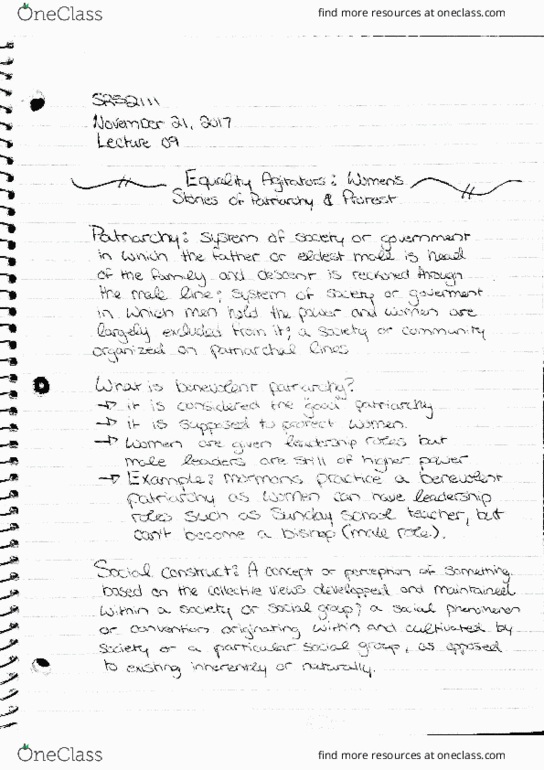 OneClass
find more resources at oneclass.com
SRS2111
November 21, 2017
Lecture 09
Equality Agitators: Women's
Stories of Patriarchy & Protest
Patriarchy: System of society or government
in which the father or eldest male is head
of the family and descent is reckoned through
the male line; system of society or goverment
in which men hold the power and women are
largely excluded from it; a society or community
organized on patriarchal lines
What is benevolent patriarchy?
→ it is considered the "good" patriarchy
→ it is supposed to protect women.
→ Women are given leadership roles but
male leaders are still of higher power
→ Example: Mormons practice a benevolent
patriarchy as women can have leadership
roles such as Sunday school teacher, but
can't become a bishop (male role).
Social construct: A concept or perception of something
based on the collective views developped and maintained
within a society or social group; a social phenomenon
or convention originating within and cultivated by
society or a particular social group, as opposed
to existing inherently or naturally.
OneClass
find more resources at oneclass.com